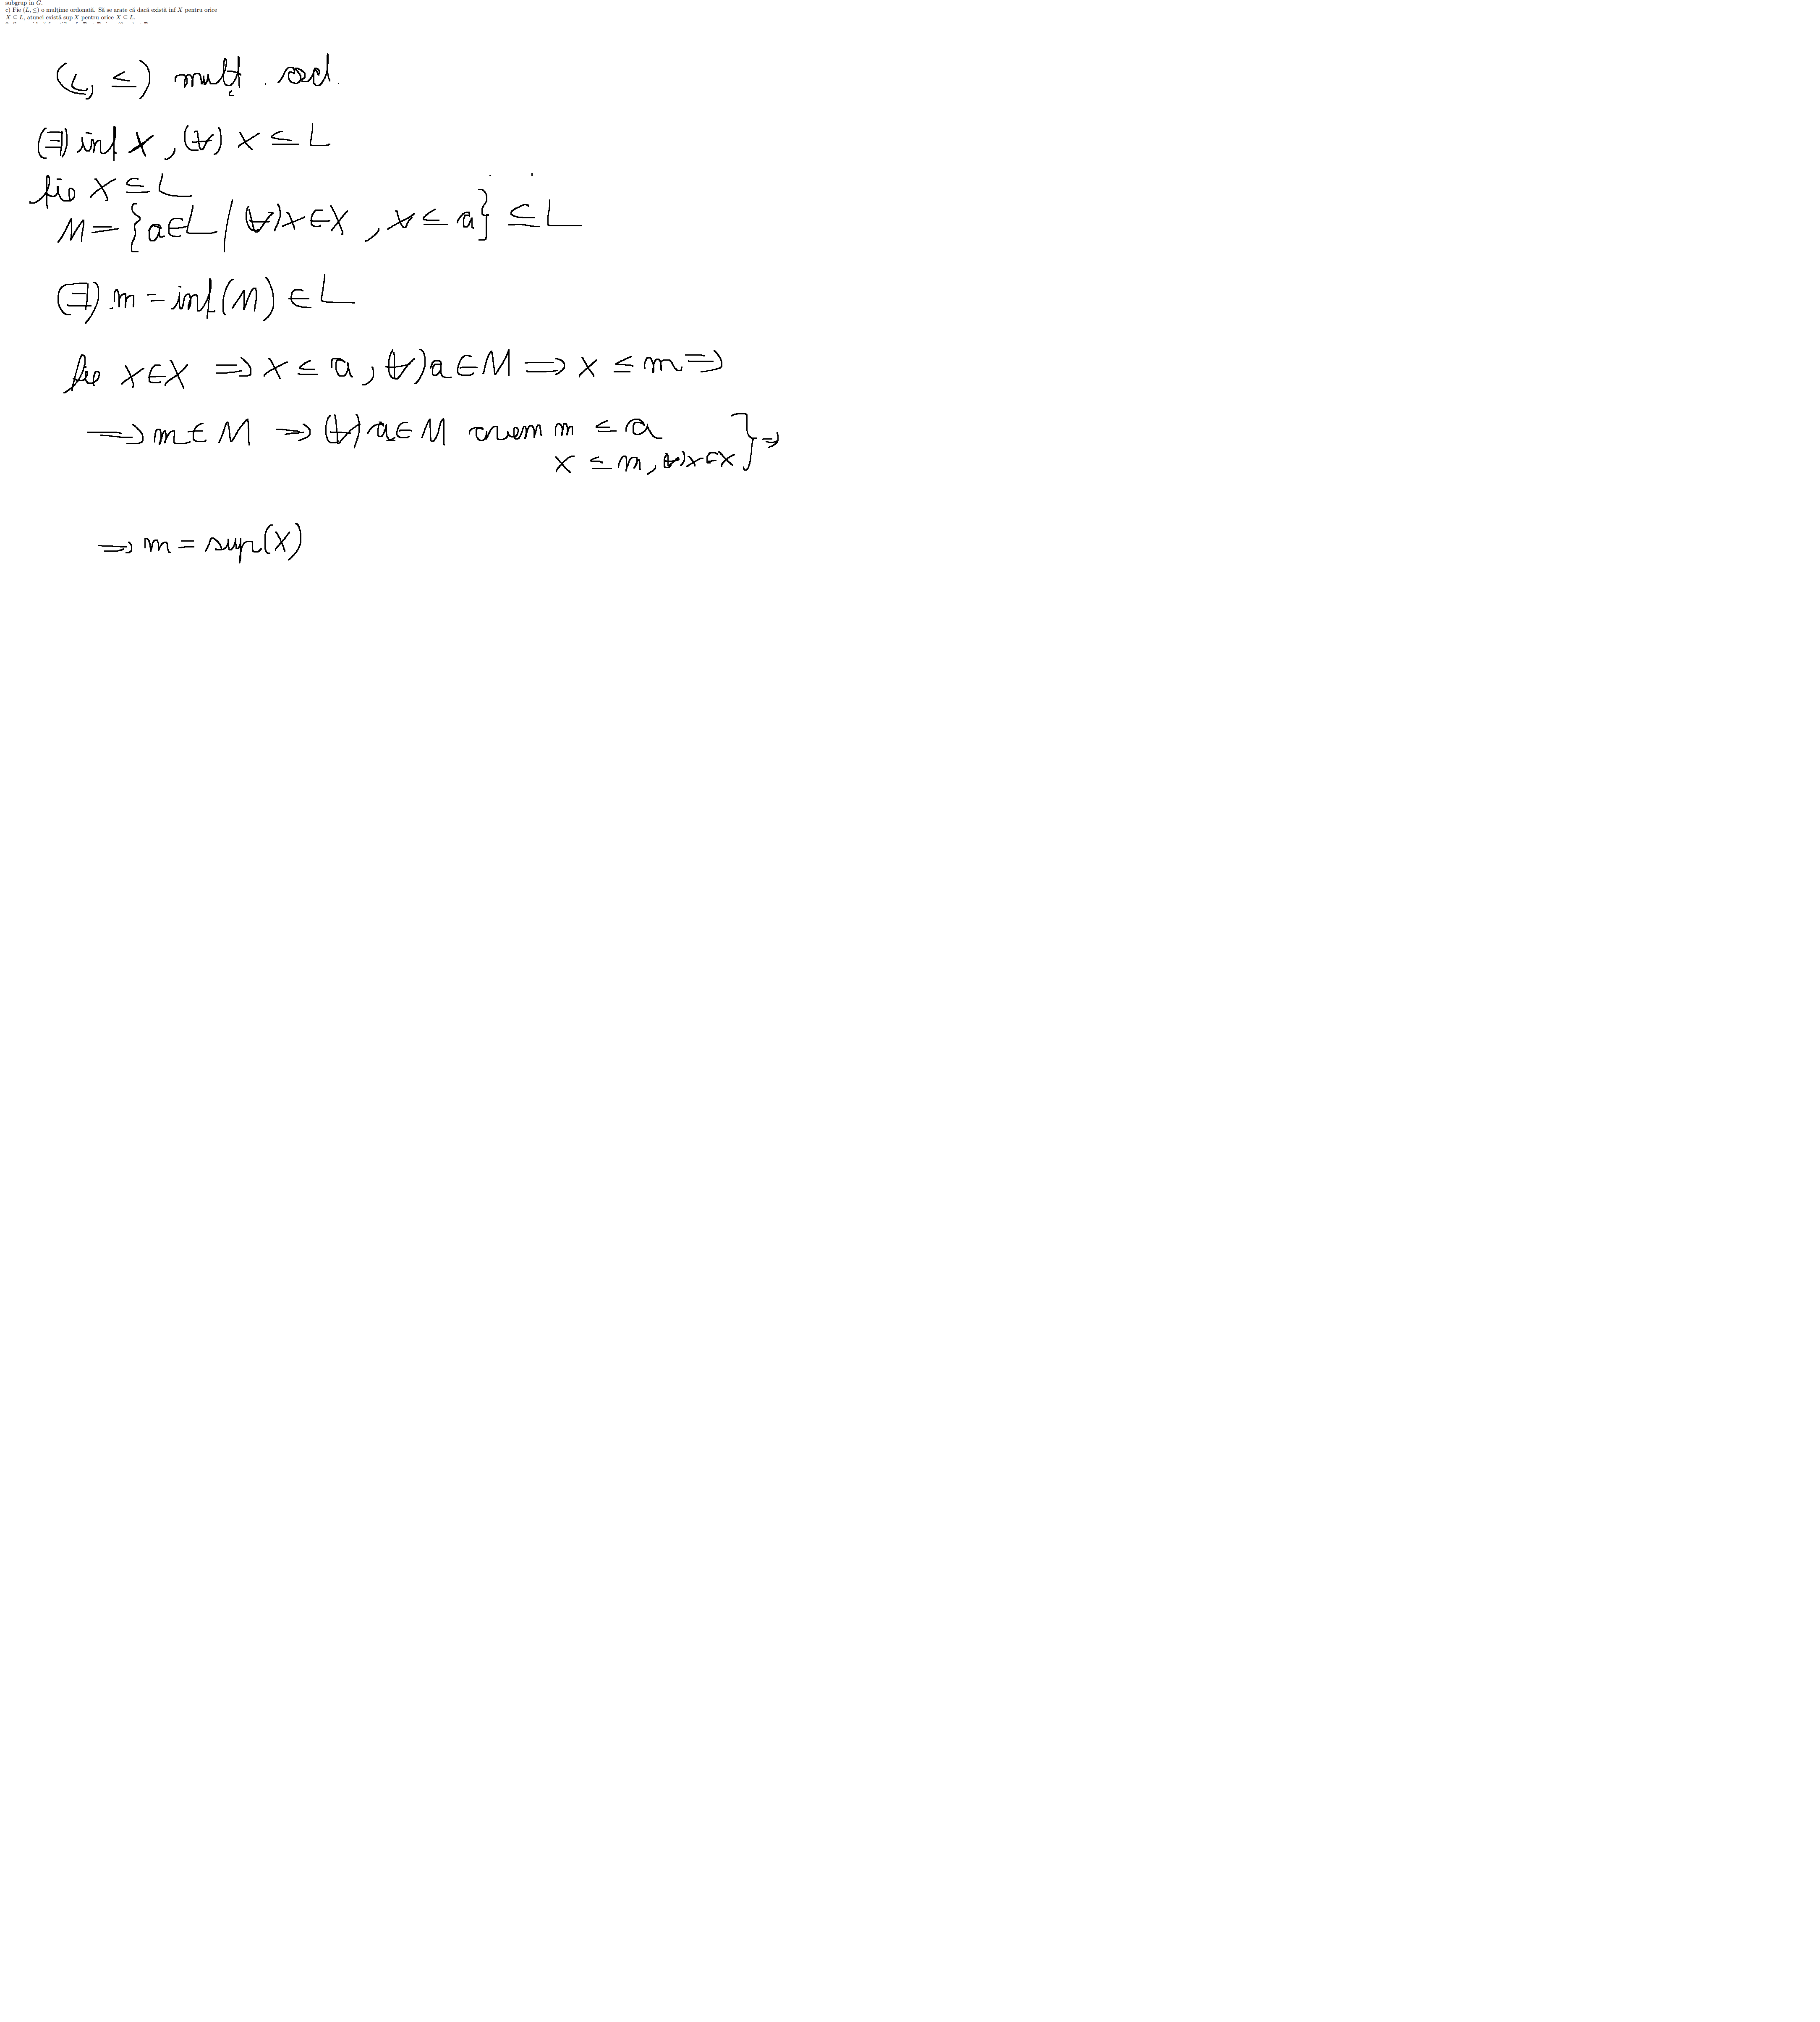 subgrup în G.
c) Fie (L, ≤) o mulțime ordonată. Să se arate că dacă există inf X pentru orice
X ⊆ L, atunci există sup X pentru orice X ⊆ L.
(L, ≤) mulț. ord.
(∃) inf X, (∀) X ⊆ L
fie X ⊆ L
M = {a∈L / (∀) x∈X, x ≤ a} ⊆ L
(∃) m = inf(M) ∈ L
fie x∈X ⇒ x ≤ a, (∀) a∈M ⇒ x ≤ m ⇒
⇒ m∈M ⇒ (∀) a∈M avem m ≤ a
x ≤ m, (∀) x∈X } ⇒
⇒ m = sup(X)